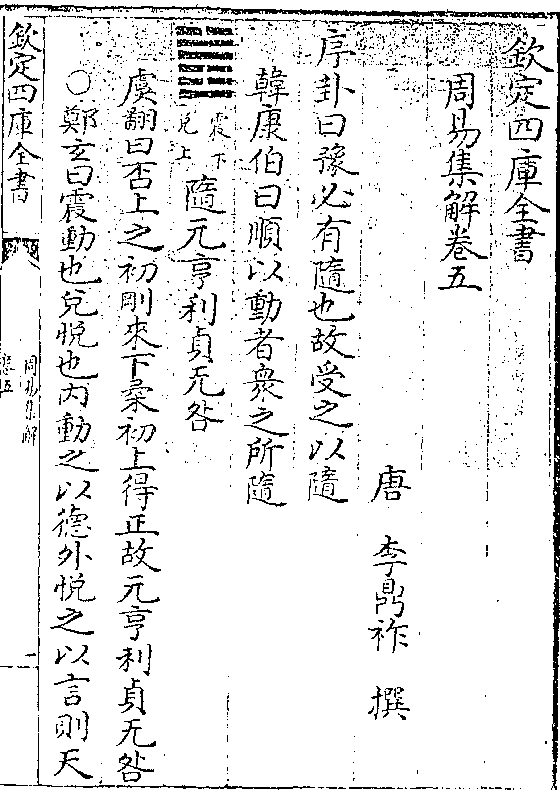 欽定四庫全書
周易集解卷五
唐 李鼎祚 撰
序卦曰豫必有隨也故受之以隨
韓康伯曰順以動者衆之所隨
震下
兌上
隨元亨利貞无咎
虞翻曰否上之初剛來下柔初上得正故元亨利貞无咎
○鄭玄曰震動也兌悅也內動之以德外悅之以言則天
欽定四庫全書
周易集解
卷五
一